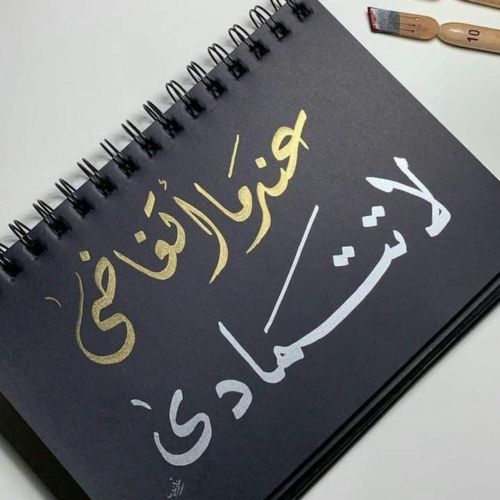 عندما أتغاضى
لا تتمادى
10